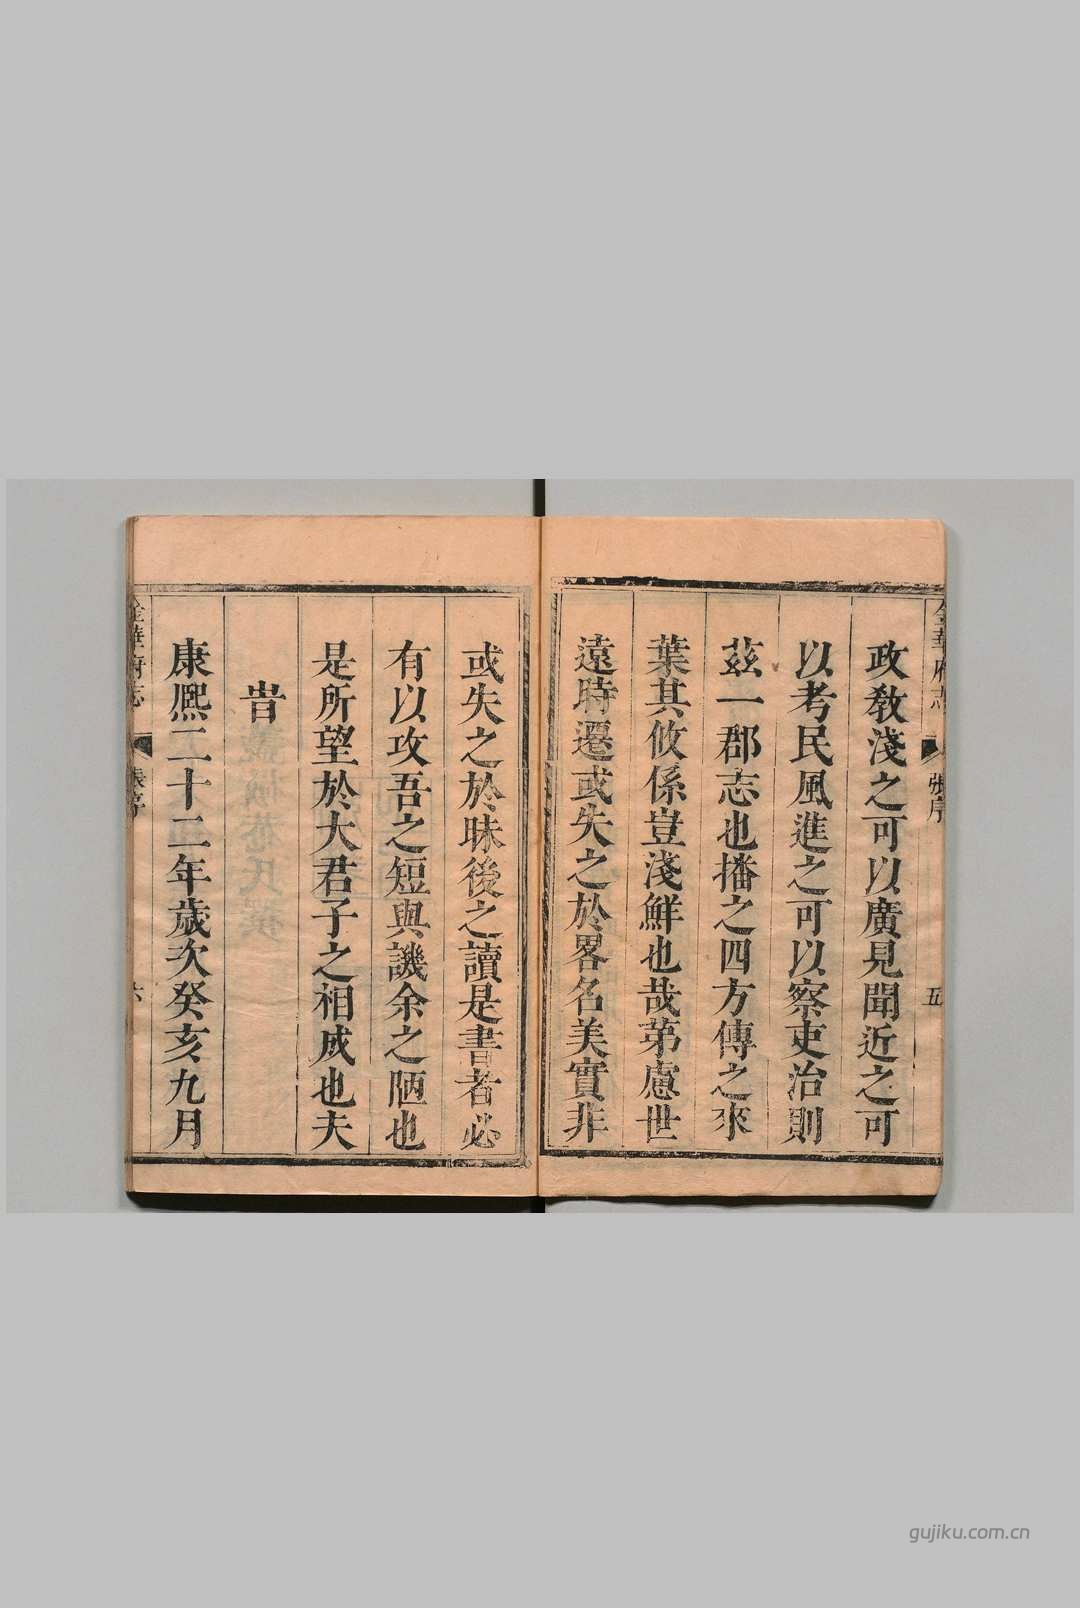 政敎淺之可以廣見聞近之可
以考民風進之可以察吏治則
茲一郡志也播之四方傳之來
葉其攸係豈淺鮮也哉第慮世
遠時遷或失之於畧名美實非
或失之於昧後之讀是書者必
有以攻吾之短與譏余之陋也
是所望於大君子之相成也夫
旹
康熙二十二年歲次癸亥九月
金華府志 張序 五
金華府志 張序 六
gujiku.com.cn